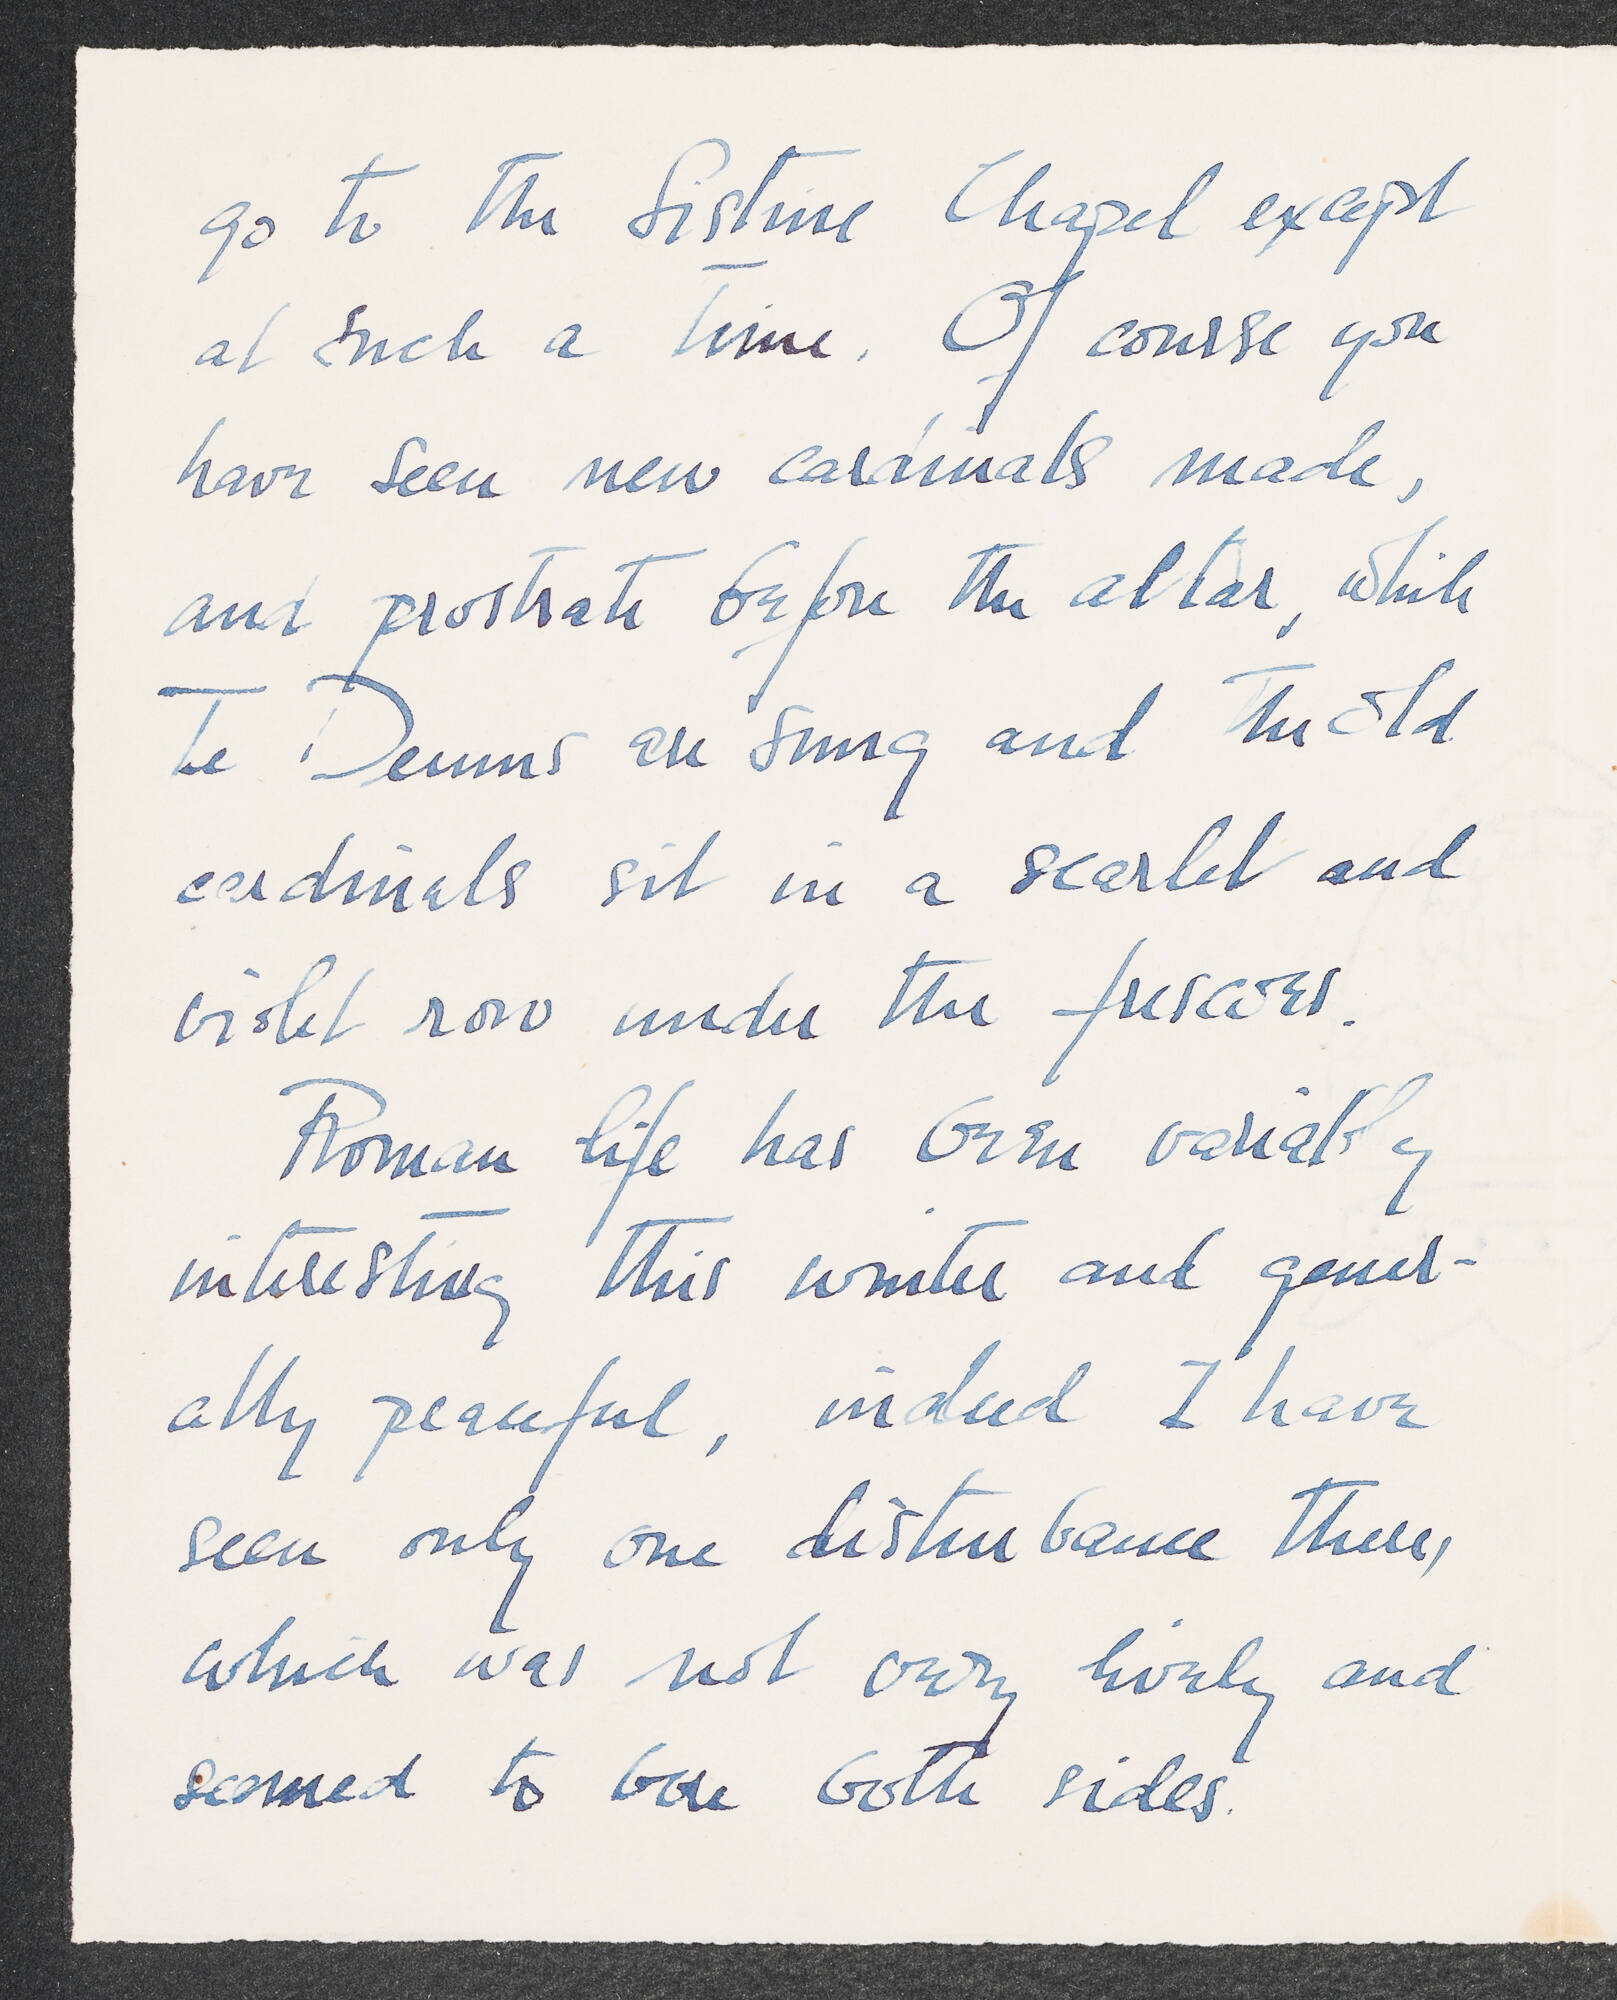 go to the Sistine Chapel except
at such a time. Of course you
have seen new cardinals made,
and prostrate before the altar, while
Te Deums are sung and the old
cardinals sit in a scarlet and
violet row under the frescoes.
Roman life has been variably
interesting this winter and gener-
ally peaceful, indeed I have
seen only one disturbance there,
which was not very lively and
seemed to bore both sides.